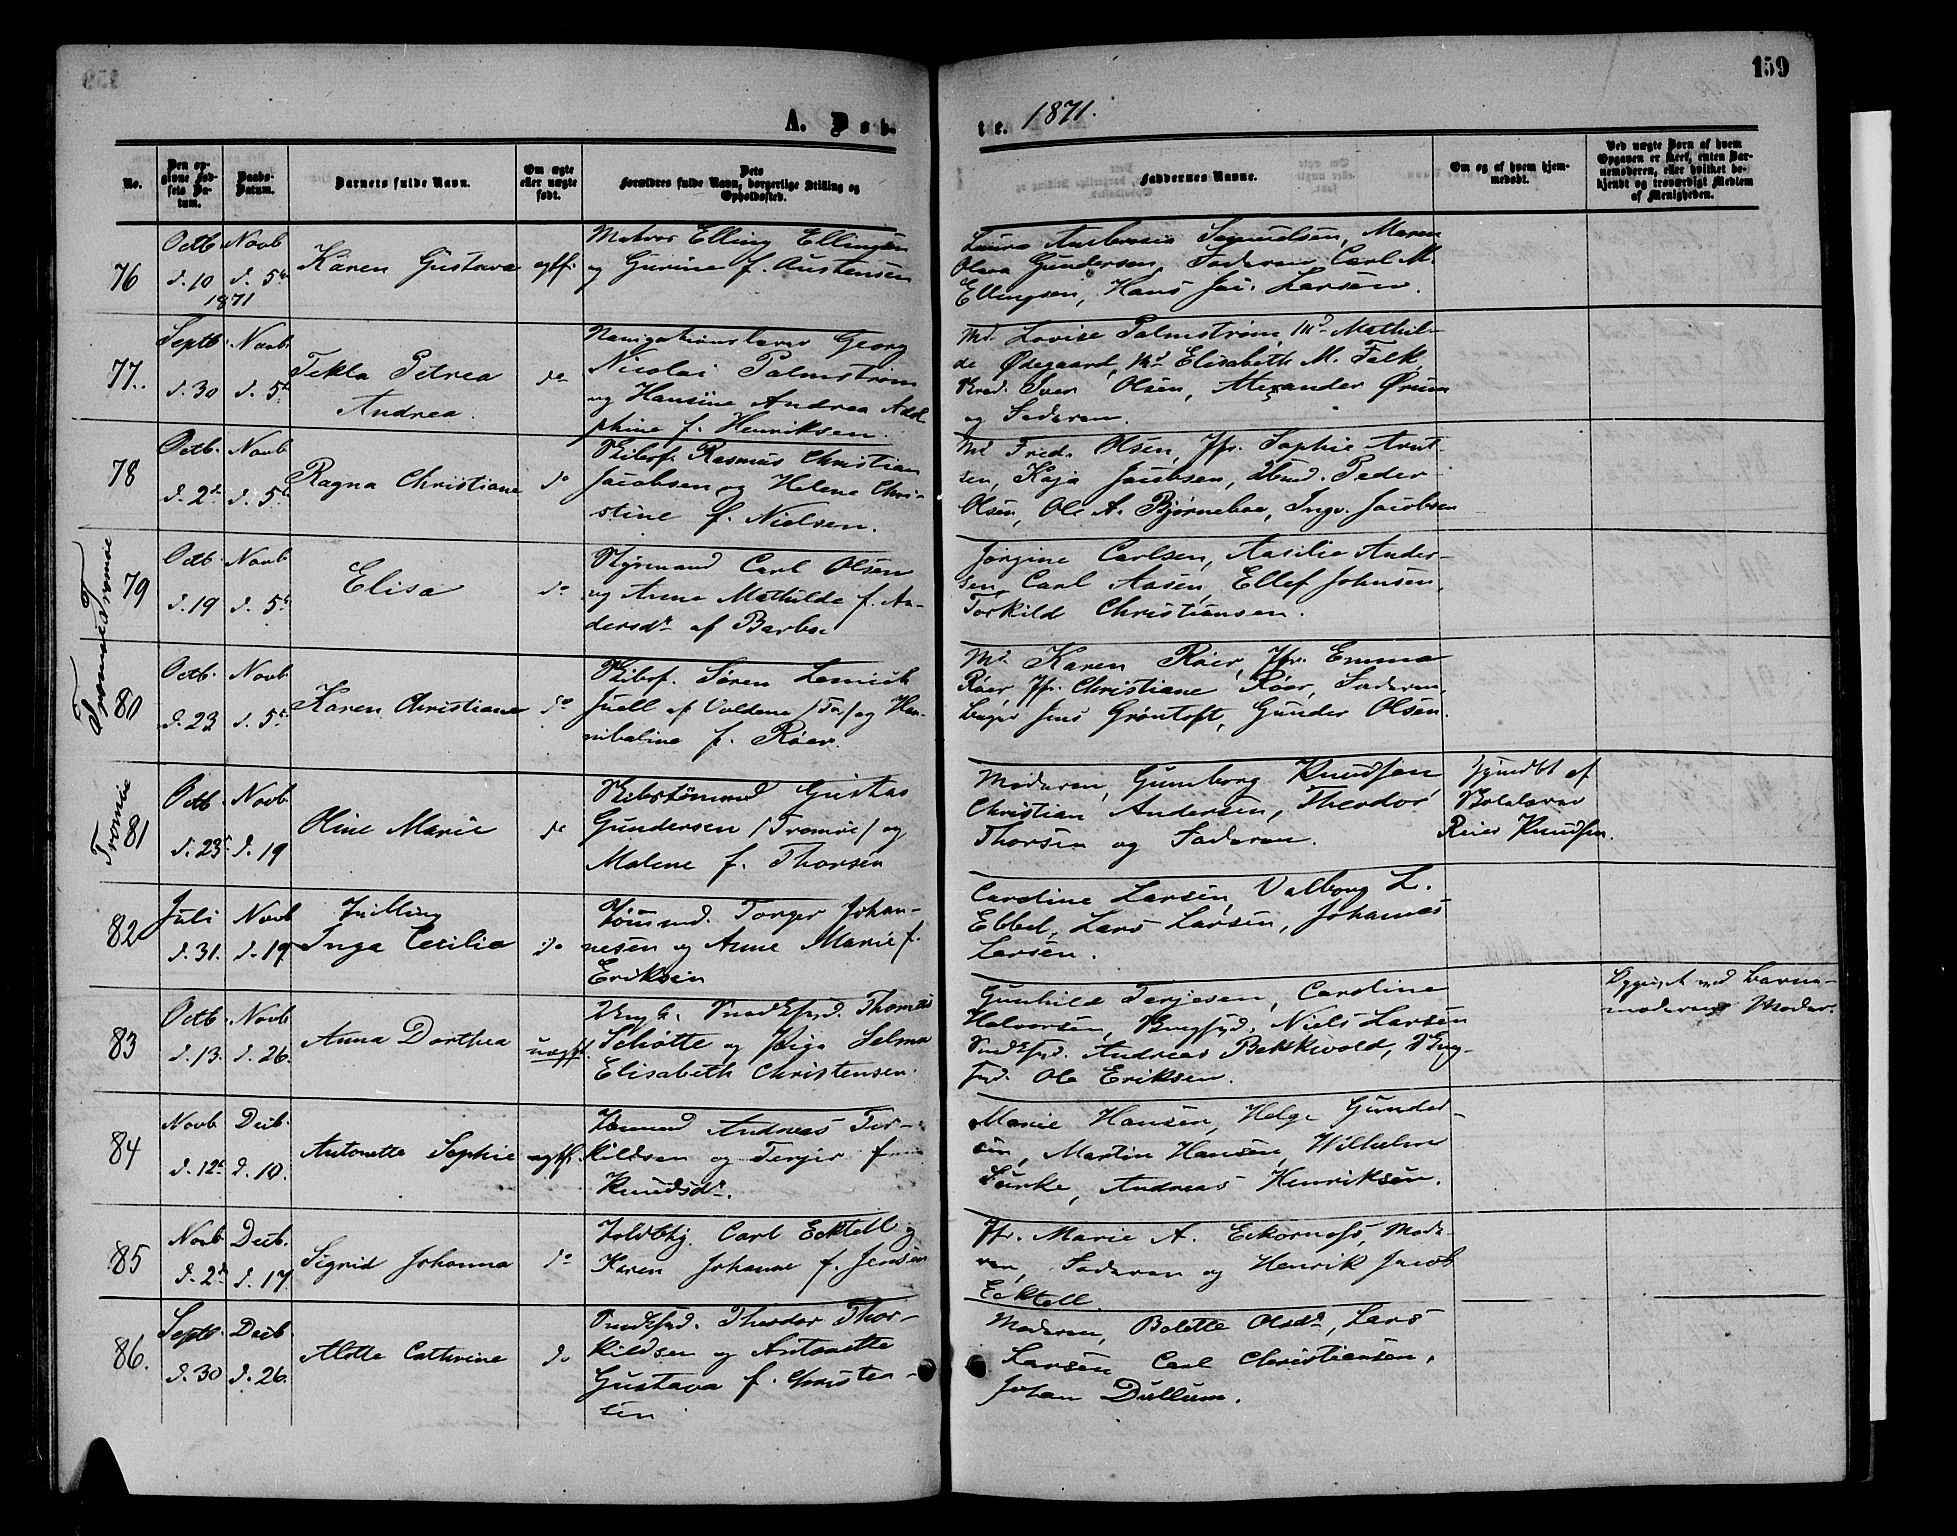 159
A. Døb-
te. 1871.
No.
Den opgivne Fødsels Datum.
Daabs-Datum.
Barnets fulde Navn.
Om ægte eller uægte født.
Dets Forældres fulde Navn, borgerlige Stilling og Opholdssted.
Faddernes Navne.
Om og af hvem hjemmedøbt.
Ved uægte Børn af hvem Opgaven er skeet, enten Barnemoderen, eller hvilket bekjendt og troværdigt Medlem af Menigheden.
76
Octb d. 10 1871
Novb d. 5te
Karen Gustava
ægtf.
Matros Elling Ellingsen
og Gurine f. Austensen
Laura Ambrosia Samuelsen, Maren
Olava Gundersen, Faderen, Carl M.
Ellingsen, Hans Jac. Larsen.
77.
Septb. d. 30
Novb. d. 5te
Tekla Petrea
Andrea.
do
Navigationslærer Georg
Nicolai Palmstrøm
og Hansine Andrea Adol
phine f. Henriksen.
Md. Lovise Palmstrøm, Md. Mathil-
de Ødegaard, Md. Elisabeth M. Falk,
Iver Olsen, Alexander
og Faderen.
78
Octb. d. 2den
Novb d. 5te
Ragna Christiane
do
Skibsf. Rasmus Christian
Jacobsen og Helene Chri-
stine f. Nielsen.
Md Fred. Olsen, Jfr. Sophie Knut-
sen, Kaja Jacobsen, Peder
Olsen, Ole A. Bjørneboe, Ingv. Jacobsen
Tromøe
79
Octb d. 19
Novb d. 5te
Elisa
do
Styrmand Carl Olsen
og Anne Mathilde f. An-
dersdr af Barboe
Jørgine Carlsen, Aasilie Ander-
sen, Carl Aasen, Ellef Johnsen,
Torkild Christiansen.
Tromøe
80
Octb. d. 23
Novb d. 5te
Karen Christiane
do
Skibsf. Søren Lemick
Juell af Voldene og Han-
nibaline f. Röer.
Md. Karen Röer, Jfr. Emma
Röer, Jfr. Christiane Röer, Faderen,
Jens Grøntoft, Gunder Olsen.
Tromöe
81
Octb. d. 23
Novb d. 19
Oline Marie
do
Skibstømmd Gustav
Gundersen /Tromöe/ og
Malene f. Thorsen
Moderen, Gumborg Knudsen,
Christian Andersen, Theodor
Thorsen og Faderen.
Hjemdbt af
Skolelærer
Reier Knudsen.
82
Juli d. 31.
Novb d. 19
Tvilling
Inga Cecilie
do
Tömmd. Torger Johan-
nesen og Anne Marie f.
Eriksen
Caroline Larsen, Valborg L.
Ebbel, Lars Larsen, Johannes
Larsen.
83
Octb. d. 13.
Novb. d. 26.
Anna Dorthea
uægtf.
Ungk. Thomas
Schötte og Pige Selma
Elisabeth Christensen.
Gunhild Terjesen, Caroline
Halvorsen, Niels Larsen
Andreas Bekkevold,
Ole Eriksen.
Opgivet ved Barne-
moderens Moder.
84
Novb d. 12te
Decb. d. 10.
Antonette Sophie
ægtf.
Tömmd Andreas Tor-
kildsen og Terjer f.
Knudsdr.
Marie Hansen, Helge Gunder-
sen, Martin Hansen, Wilhelm
Funke, Andreas Henriksen.
85
Novb d. 2den
Decb. d. 17.
Sigrid Johanna
do
Toldbtj. Carl Ecktell og
Karen Johanne f. Jensen
Jfr. Marie A. Eckornæss, Mode-
ren, Faderen og Henrik Jacob
Ecktell.
86.
Septb. d. 30
Decb d. 26.
Alette Cathrine
do
Theodor Thor-
kildsen og Antonette
Gustava f. Christen-
sen
Moderen, Bolette Olsdr, Lars
Larsen, Carl Christiansen,
Johan Dullum.